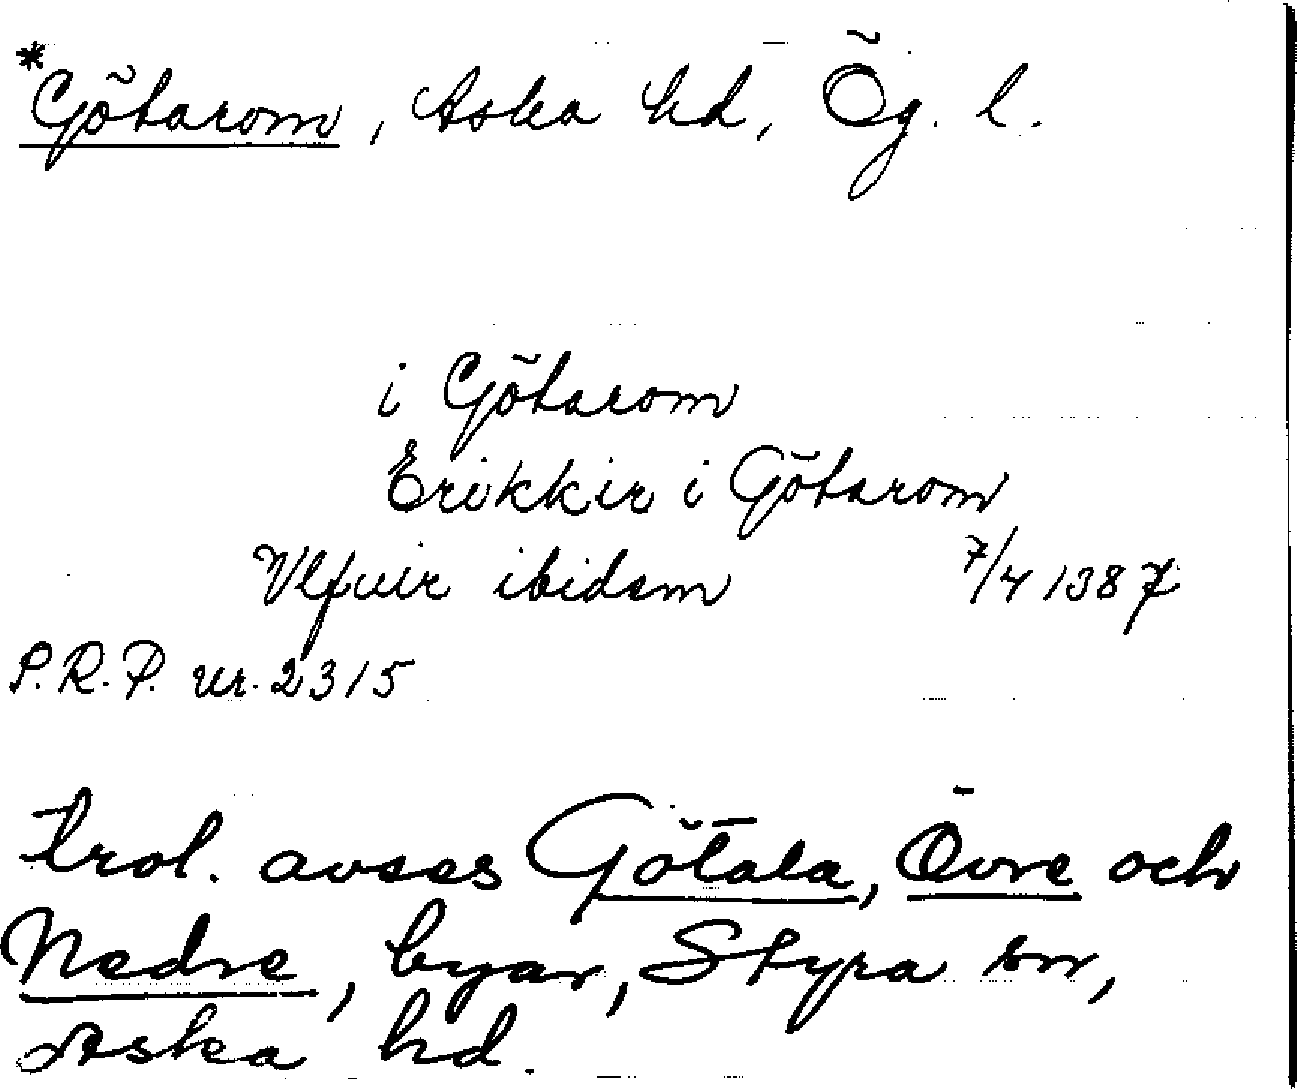 *Götarom, Aska hd, Ög. l.
i Götarom
Erikkir i Götarom
Vlfuir ibidem 7/4 1387
S.R.P. nr. 2315
Trol. avses Götala, Övre och
Nedre, byar, Styra sn,
Aska hd.